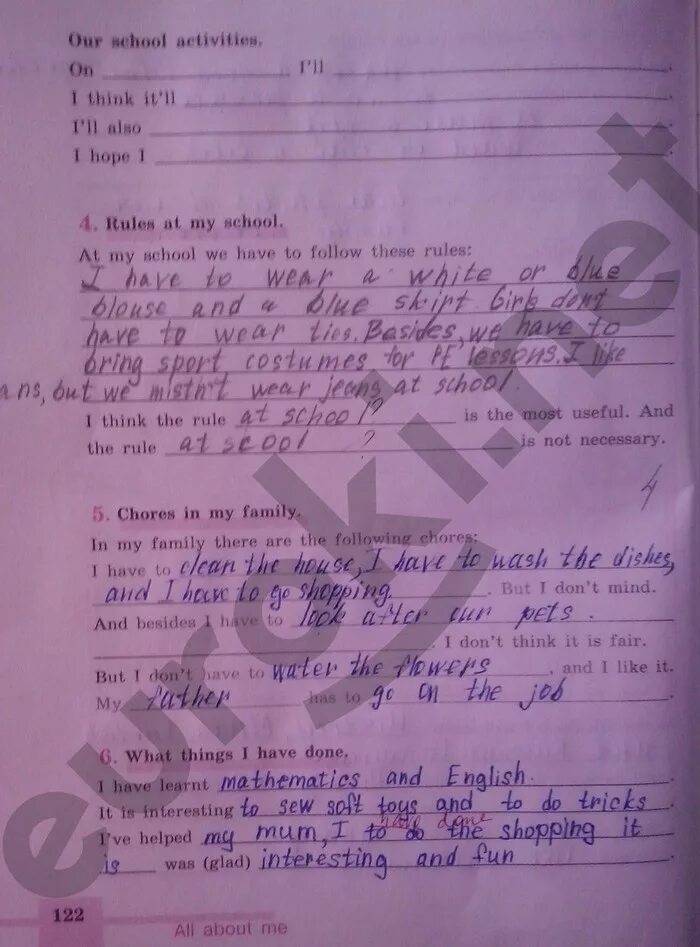 Our school activities.
On ______ I'll ______.
I think it'll ______.
I'll also ______.
I hope I ______.
4. Rules at my school.
At my school we have to follow these rules:
I have to wear a white or blue
blouse and a blue skirt. Girls don't
have to wear ties. Besides, we have to
bring sport costumes for PE lessons. I like
ans, but we mistn't wear jeans at school.
I think the rule at school? is the most useful. And
the rule at scool ? is not necessary.
4
5. Chores in my family.
In my family there are the following chores:
I have to clean the house, I have to wash the dishes,
and I have to go shopping. But I don't mind.
And besides I have to look after our pets.
______. I don't think it is fair.
But I don't have to water the flowers, and I like it.
My father has to go on the job.
6. What things I have done.
I have learnt mathematics and English.
It is interesting to sew soft toys and to do tricks
have done
I've helped my mum, I to do the shopping it
is was (glad) interesting and fun.
122
All about me
euroki.net